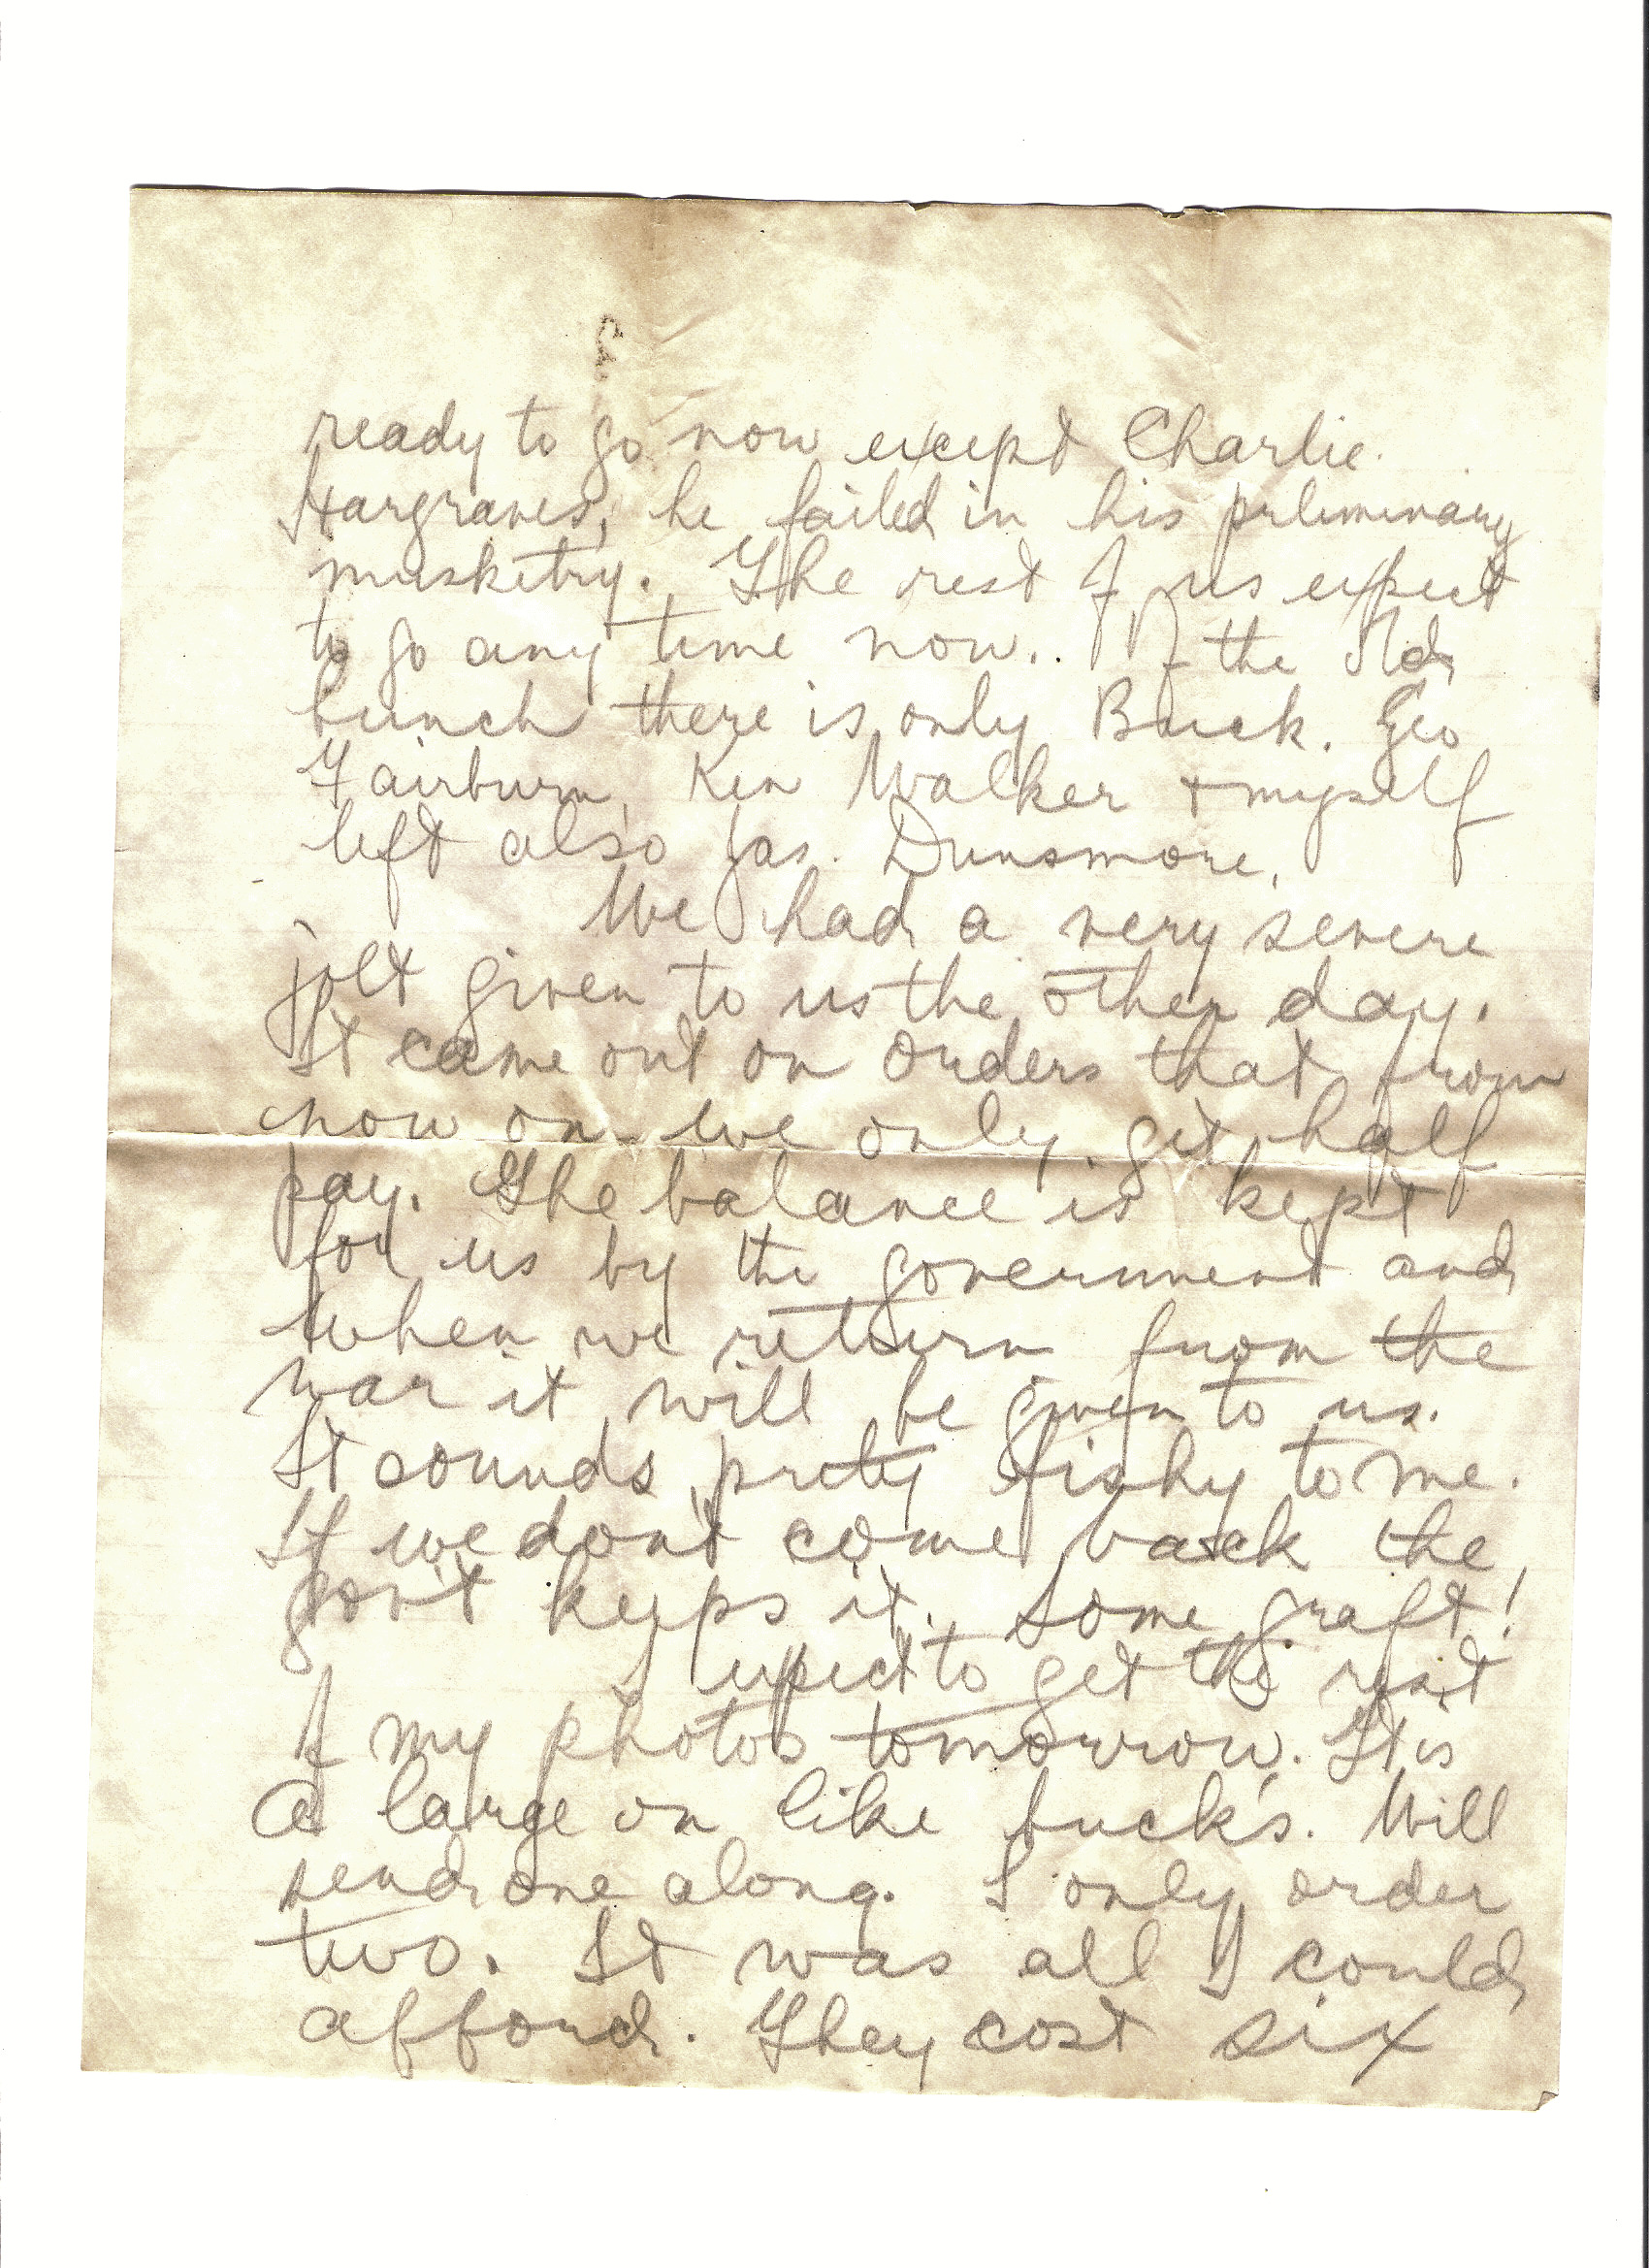 ready to go now except Charlie.
Hargraves, he failed in his prliminary
musketry. The rest of us expect
to go any time now. Of the Old
bunch there is only Buck. Geo
Fairburn, Ken Walker + myself
left also Jas. Dunsmore.
We had a very severe
jolt given to us the other day.
It came out on orders that from
now on we only get half
pay. The balance is kept
for us by the government and
when we return from the
war it will be given to us.
It sounds prety fishy to me.
If we don't come back the
gov't keeps it. Some graft!
I expect to get the rest
of my photos tomorrow. It is
a large on like buck's. Will
send one along. I only order
two. It was all I could
afford. They cost six